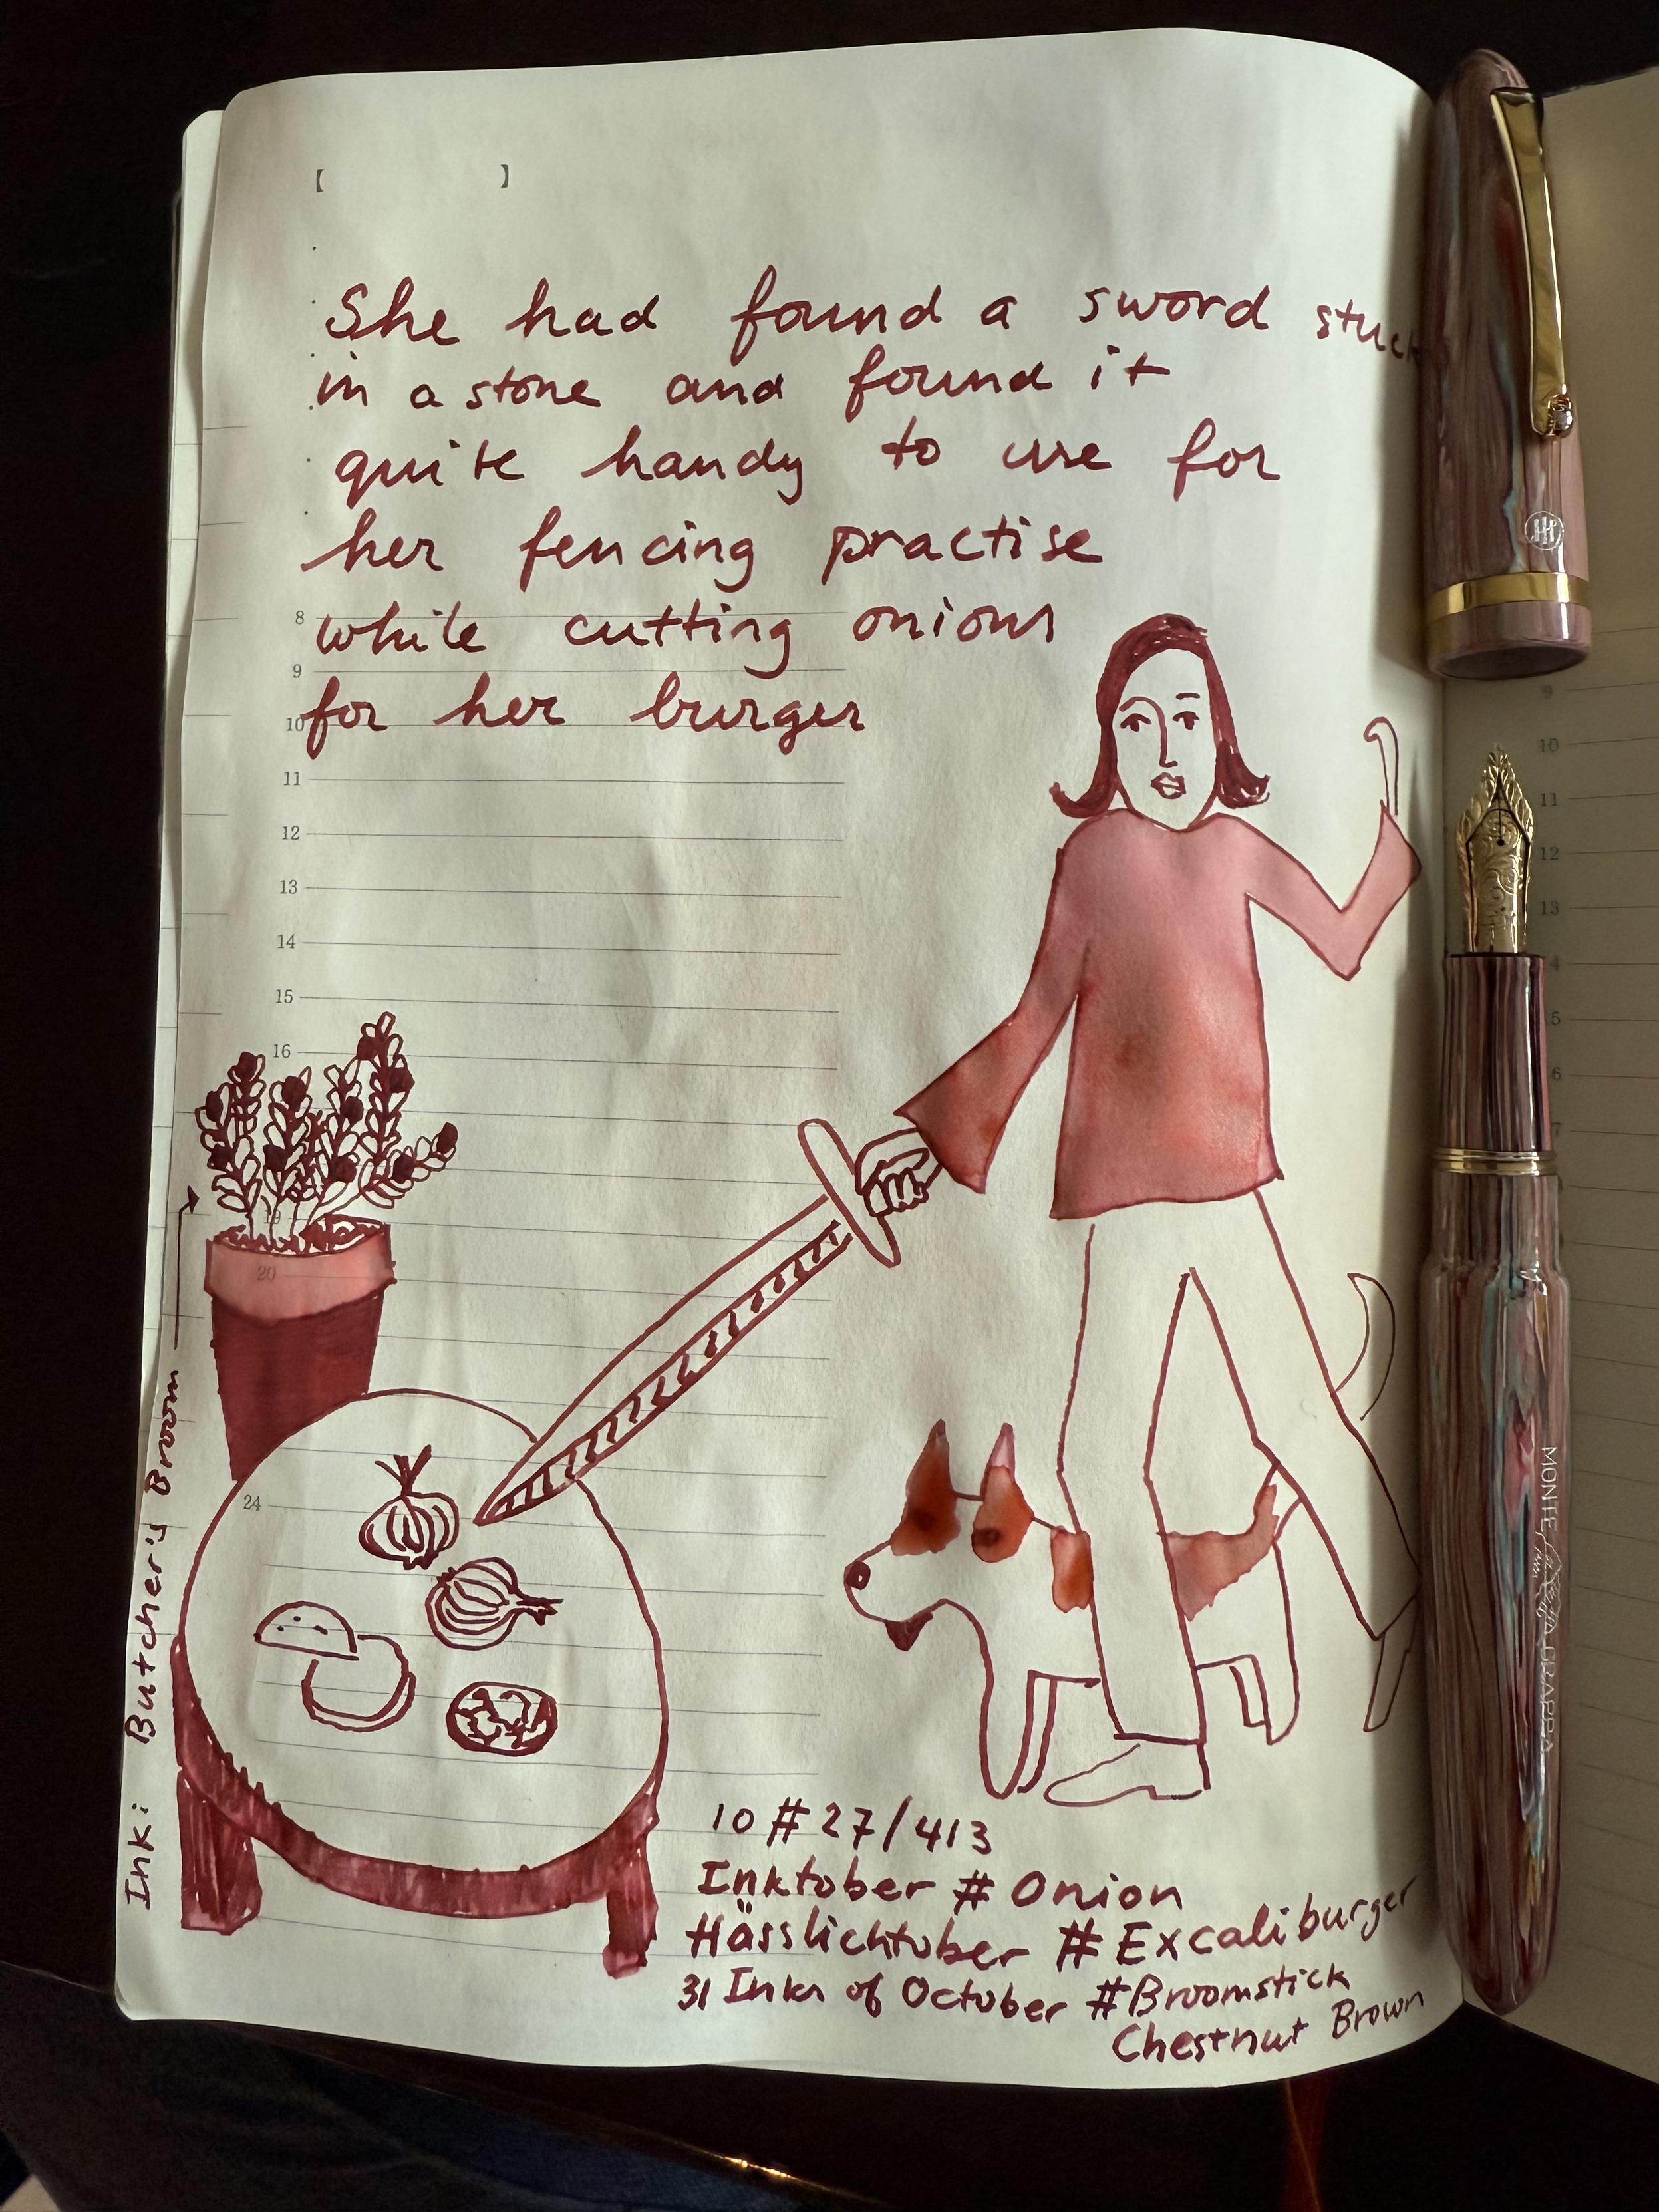 【 】
She had found a sword stuck
in a stone and found it
quite handy to use for
her fencing practise
while cutting onions
for her burger
8
9
10
11
12
13
14
15
16
19
20
24
Ink: Butcher's Broom
10 # 27/413
Inktober # Onion
Hässlichtober # Excaliburger
31 Inks of October # Broomstick
Chestnut Brown
9
10
11
12
13
4
5
6
7
MONTE GRAPPA